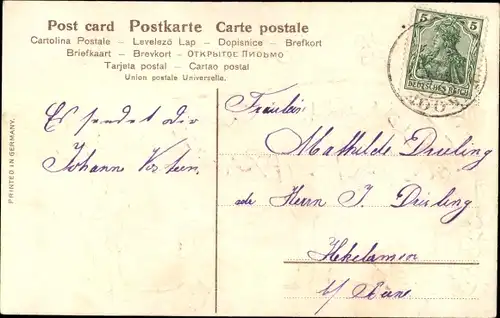 Post card Postkarte Carte postale
Cartolina Postale – Levelező Lap – Dopisnice – Brefkort
Briefkaart – Brevkort – ОТКРЫТОЕ ПИСЬМО
Tarjeta postal – Cartao postal
Union postale Universelle.
5 5
DEUTSCHES REICH
PRINTED IN GERMANY.
Es sendet dir
Johann
Fräulein
Mathilde Dreeling
Herrn J. Dreeling
b/